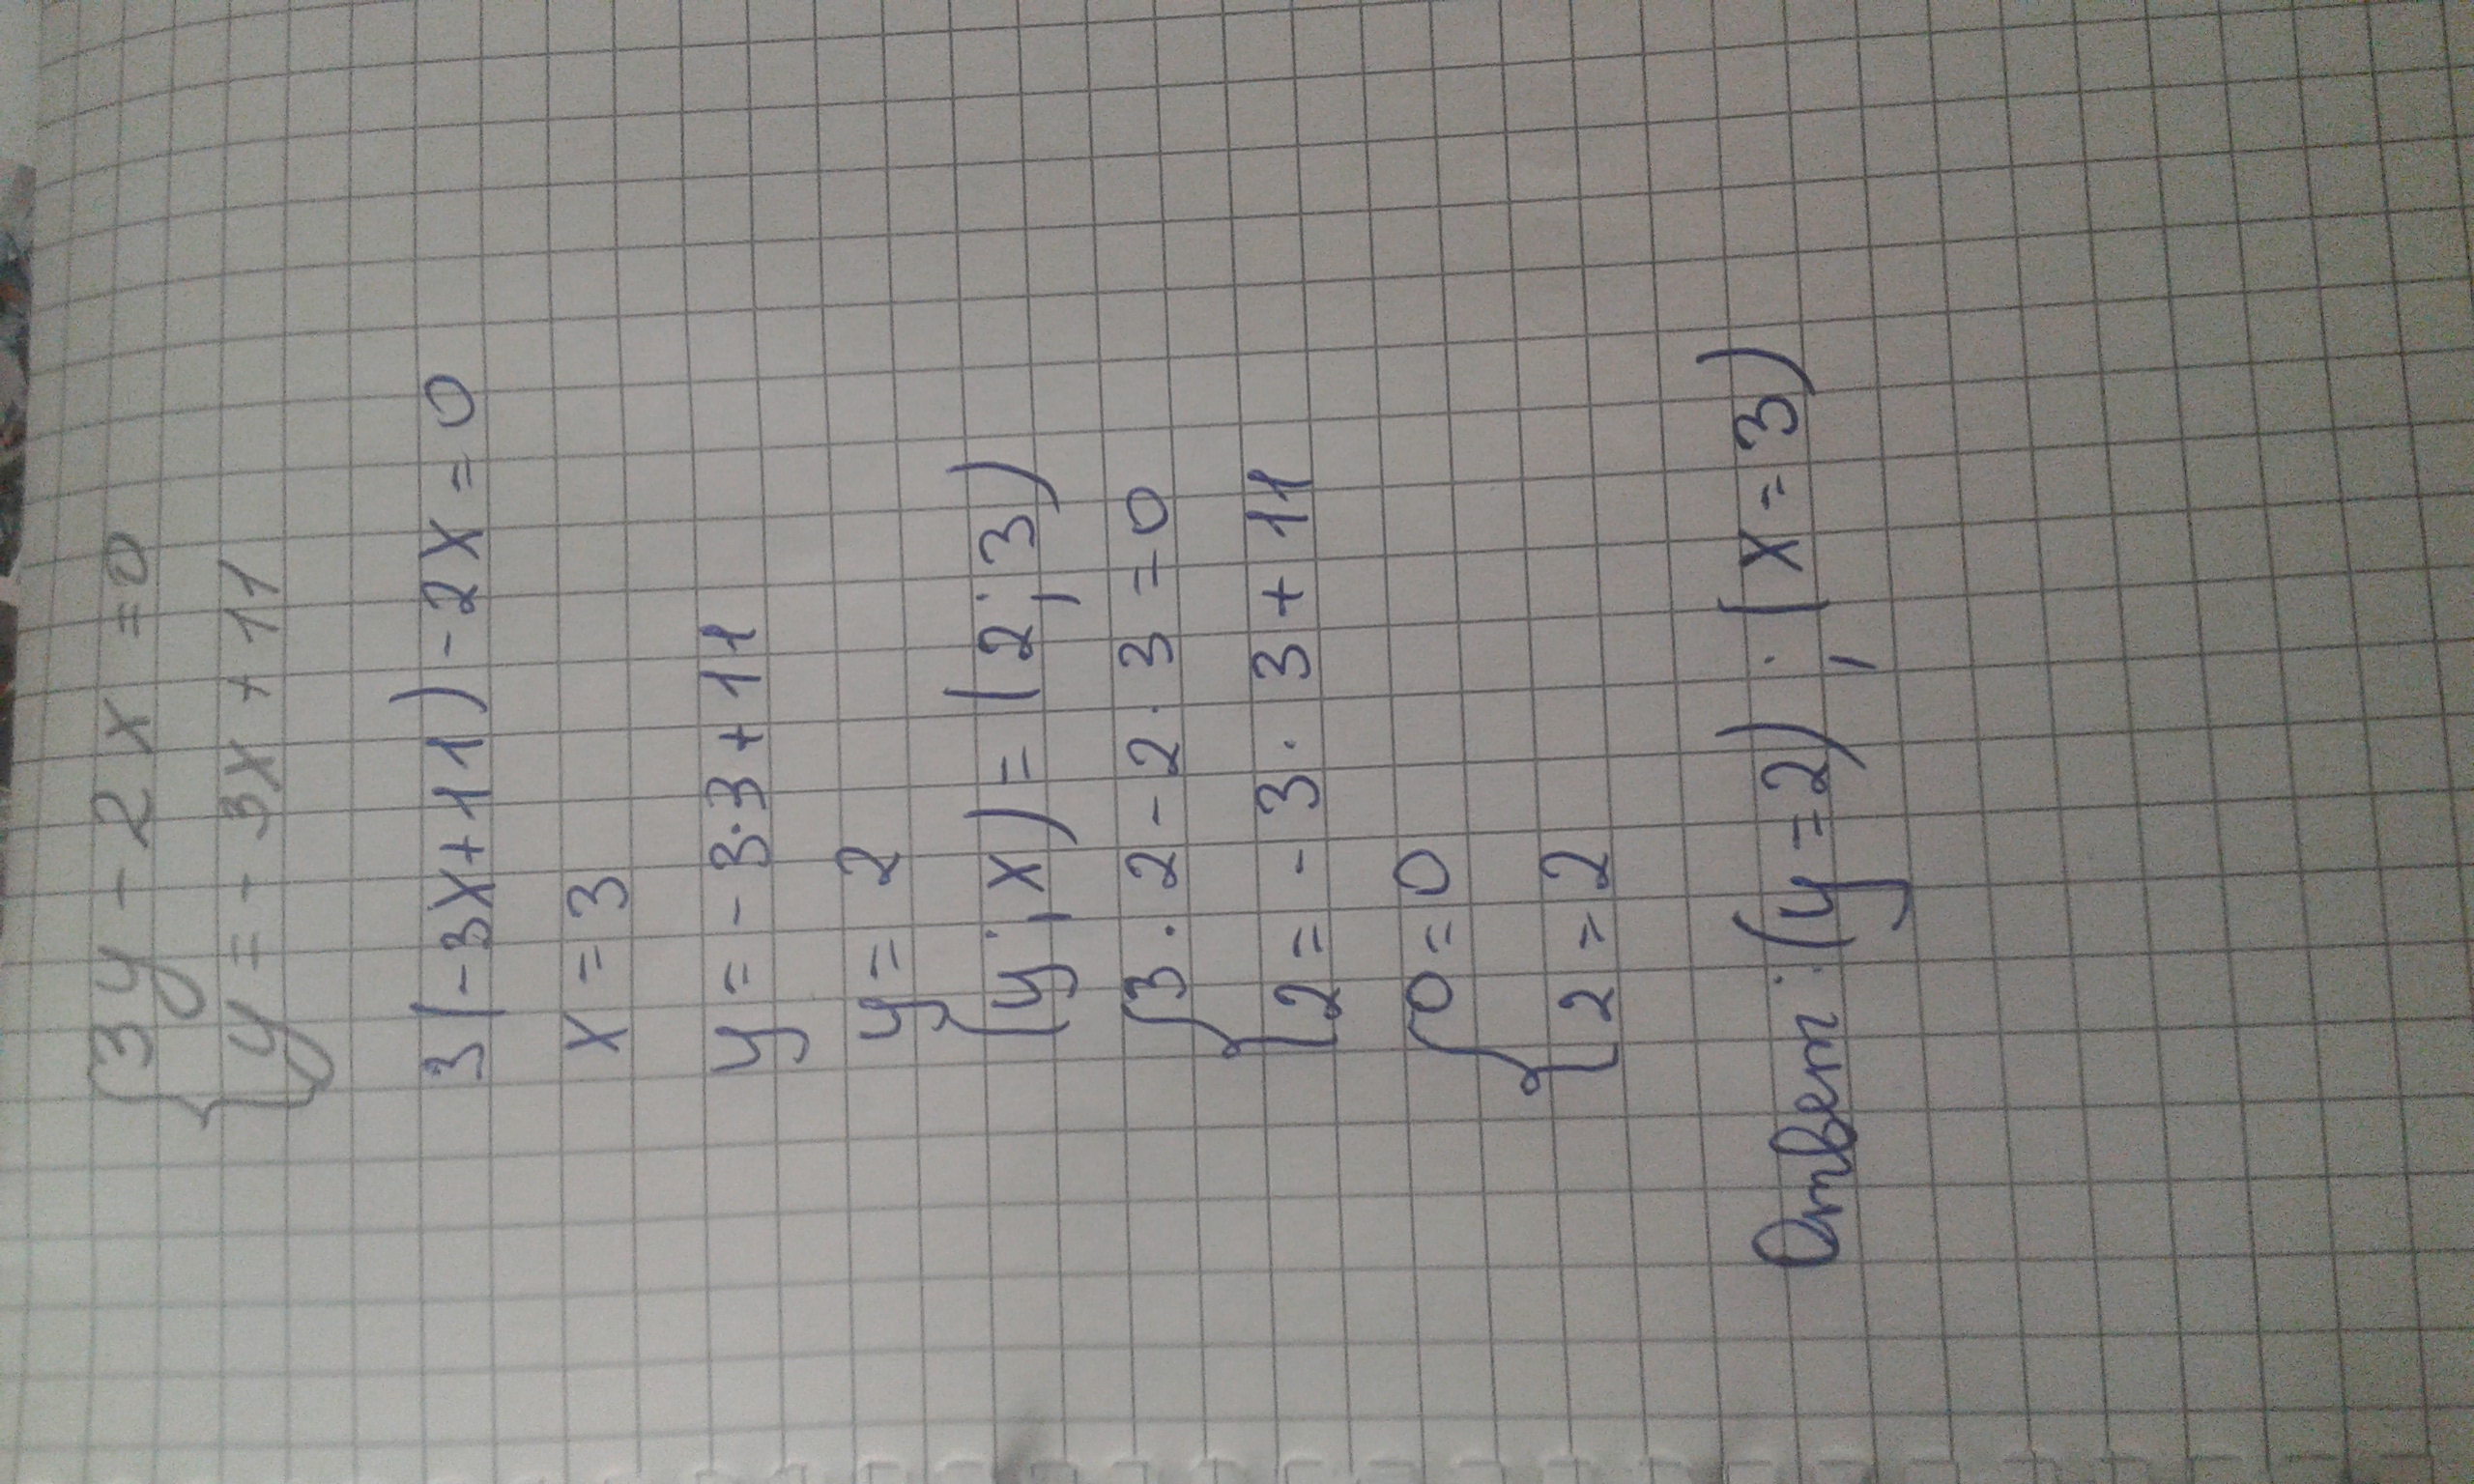 {3y - 2x = 0
{y = - 3x + 11
3(-3x+11)-2x=0
x = 3
y = -3·3+11
y = 2
(y; x) = (2; 3)
{3·2-2·3=0
{2 = - 3 · 3 + 11
{0=0
{2=2
Ответ: (y=2); (x=3)